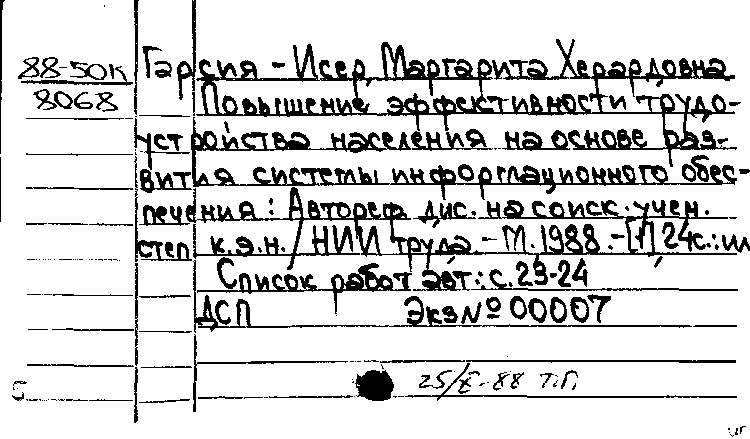 88-50К
8068
Гарсия-Исер, Маргарита Херардовна
Повышение эффективности трудо-
устройства населения на основе раз-
вития системы информационного обес-
печения: Автореф. дис. на соиск. учен.
степ. к.э.н. / НИИ труда. - М. 1988. - [1] 24с.: ил
Список работ авт: с. 23-24
ДСП Экз № 00007
25/X-88